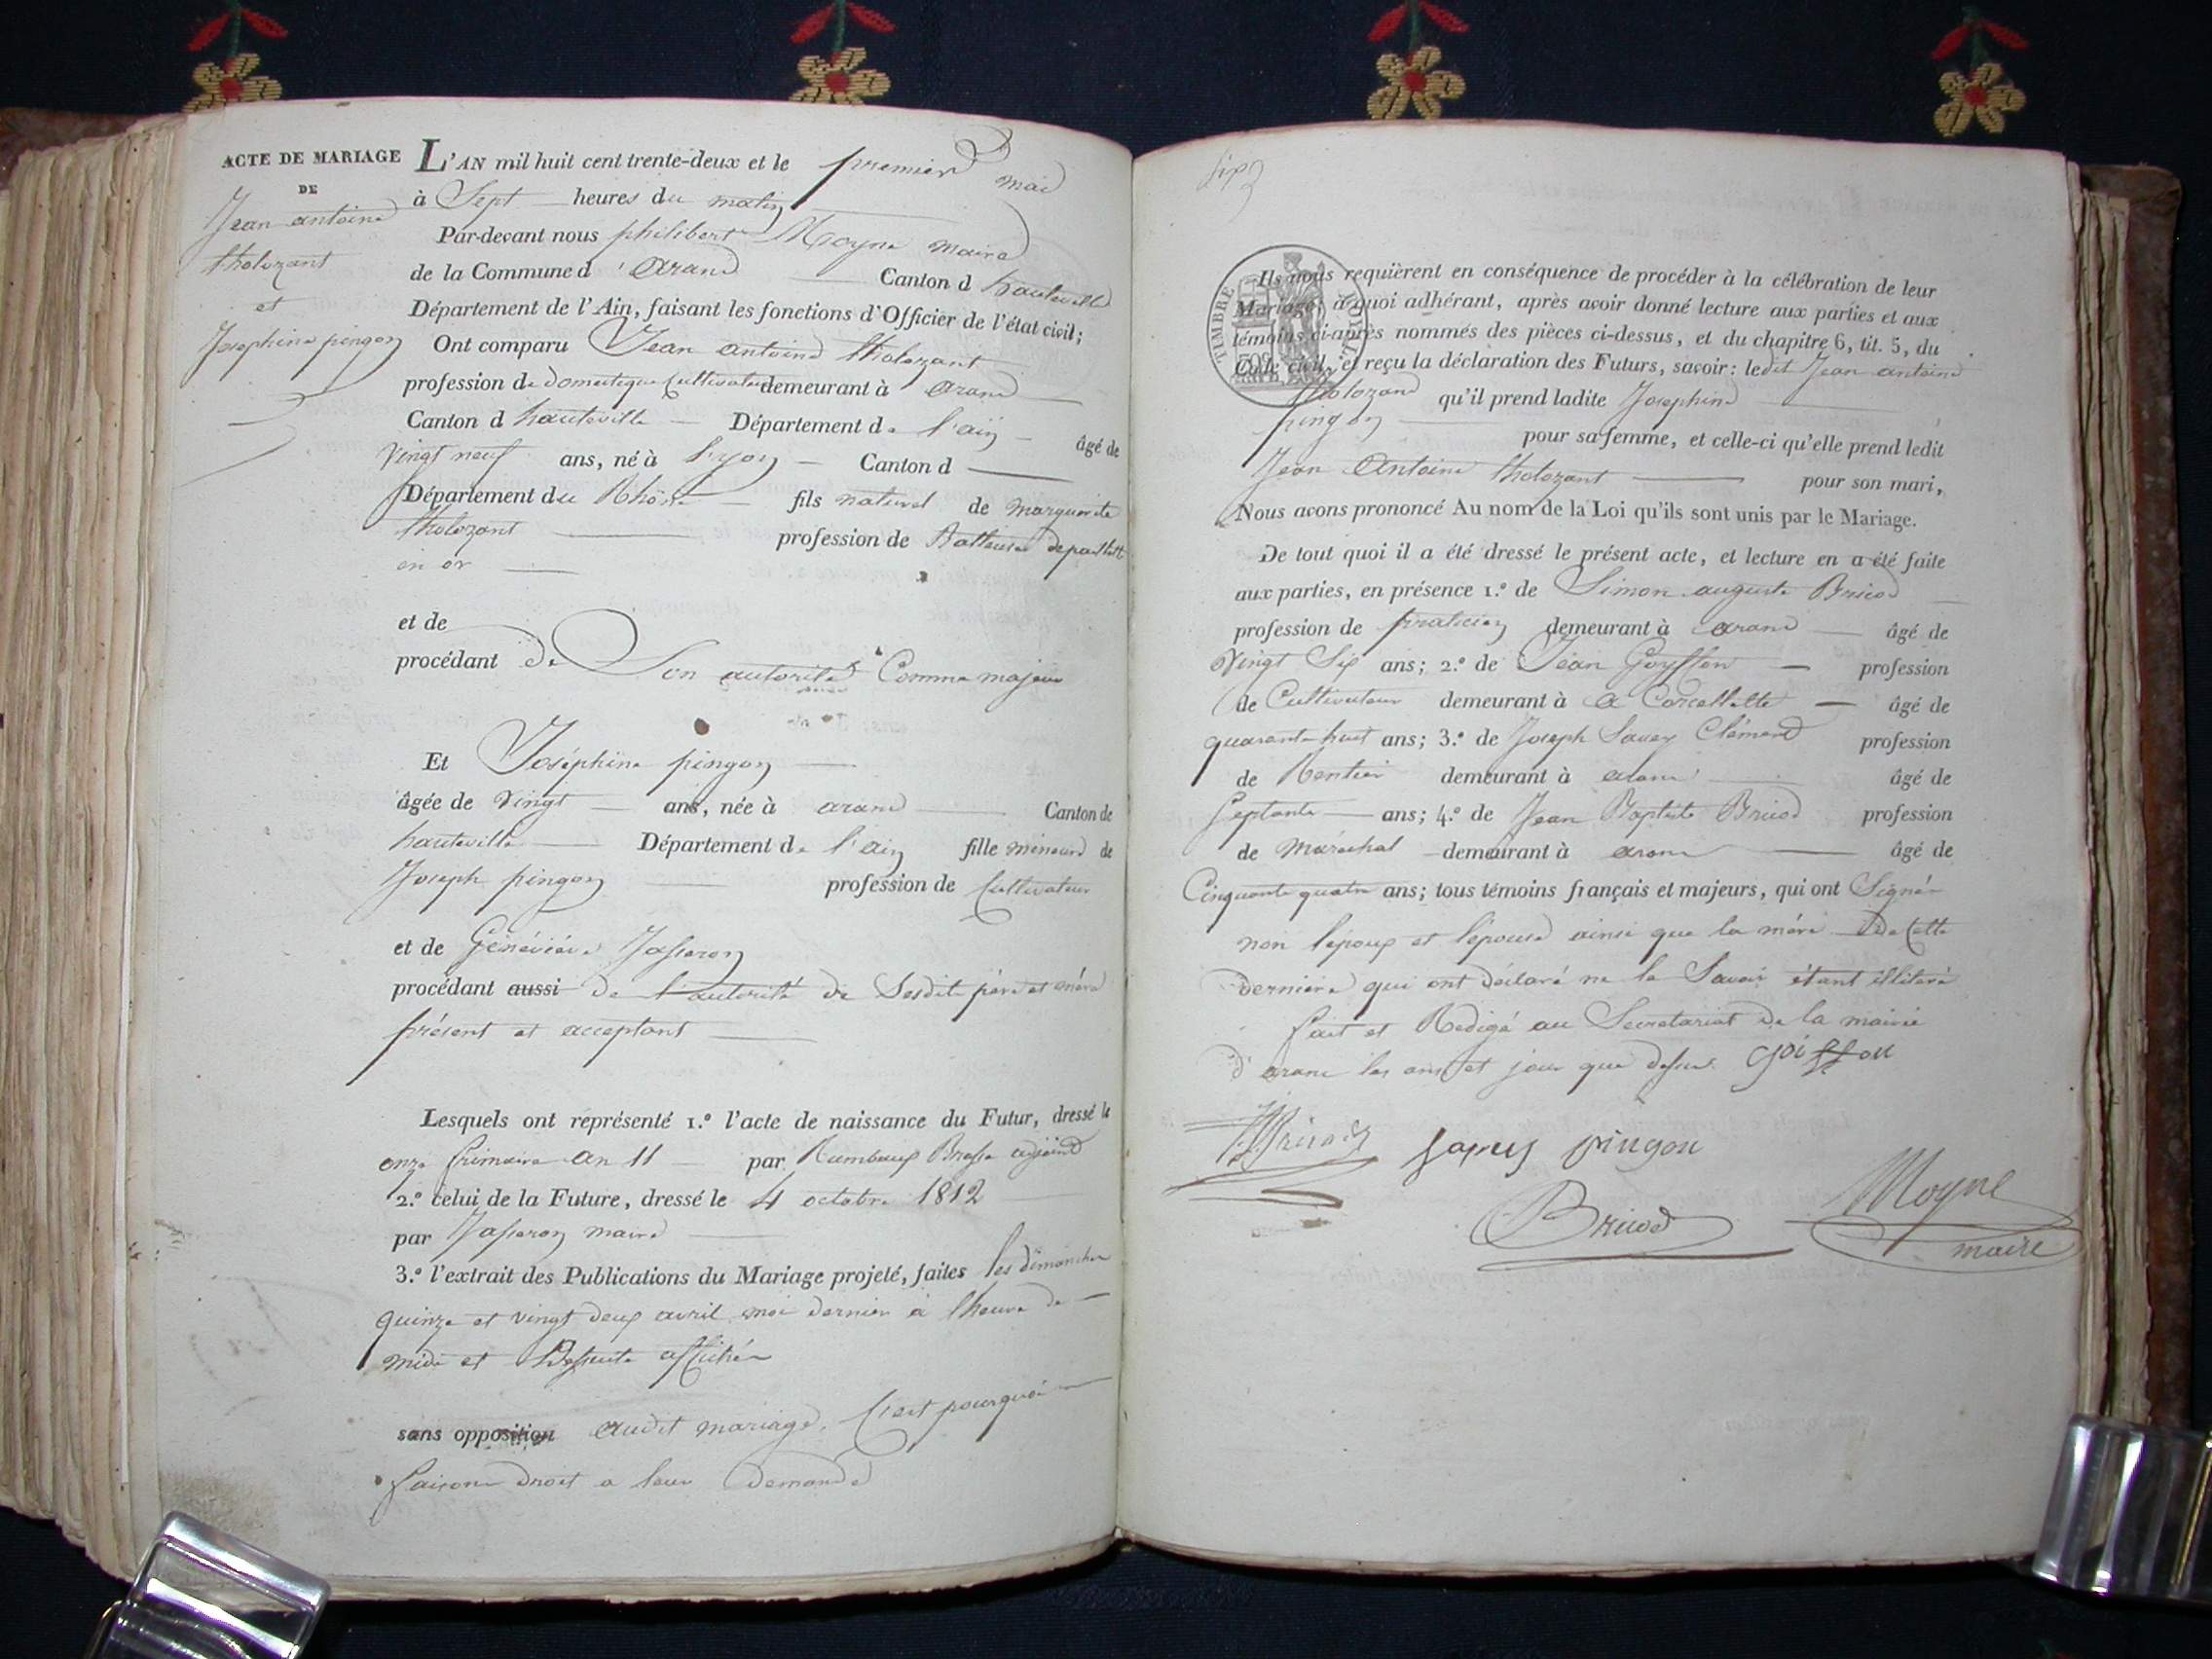 ACTE DE MARIAGE
DE
Jean antoine
tholozant
et
Josephine pingon
L'AN mil huit cent trente-deux et le premier mai
à Sept heures du matin
Par-devant nous philibert Moyne maire
de la Commune d'aranc Canton d hauteville
Département de l'Ain, faisant les fonctions d'Officier de l'état civil;
Ont comparu Jean antoine tholozant
profession de domestique Cultivateur demeurant à aranc
Canton d hauteville Département de l'ain âgé de
vingt neuf ans, né à lyon Canton d
Département du Rhône fils naturel de marguerite
tholozant profession de Batteuse de paillette
en or
et de
procédant de Son autorité Comme majeur
Et Joséphine pingon
âgée de vingt ans, née à aranc Canton de
hauteville Département de l'ain fille mineure de
Joseph pingon profession de Cultivateur
et de Généviève Jasseron
procédant aussi de l'autorité de Sesdits père et mère
présent et acceptant
Lesquels ont représenté 1.º l'acte de naissance du Futur, dressé le
onze frimaire an 11 par Brosse adjoint
2.º celui de la Future, dressé le 4 octobre 1812
par Jasseron maire
3.º l'extrait des Publications du Mariage projeté, faites les dimanches
quinze et vingt deux avril moi dernier à lheure de
midi et affichés
sans opposition audit mariage. C'est pourquoi
faisons droit a leur demande
TIMBRE ROYAL
Ils nous requièrent en conséquence de procéder à la célébration de leur
Mariage; à quoi adhérant, après avoir donné lecture aux parties et aux
témoins ci-après nommés des pièces ci-dessus, et du chapitre 6, tit. 5, du
Code civil, et reçu la déclaration des Futurs, savoir: ledit Jean antoine
tholozand qu'il prend ladite Josephine
pingon pour sa femme, et celle-ci qu'elle prend ledit
Jean Antoine tholozant pour son mari,
Nous avons prononcé Au nom de la Loi qu'ils sont unis par le Mariage.
De tout quoi il a été dressé le présent acte, et lecture en a été faite
aux parties, en présence 1.º de Simon auguste Bricod
profession de praticien demeurant à aranc âgé de
vingt Six ans; 2.º de Jean Goyffon profession
de Cultivateur demeurant à a Corcellette âgé de
quarante huit ans; 3.º de Joseph Savey Clémend profession
de Rentier demeurant à aranc âgé de
Septante ans; 4.º de Jean Baptiste Bricod profession
de maréchal demeurant à aranc âgé de
Cinquante quatre ans; tous témoins français et majeurs, qui ont Signés
non l'époux et l'épouse ainsi que la mère de Cette
dernière qui ont déclaré ne le Savoir étant illiteré
fait et Redigé au Secretariat de la mairie
d'aranc les ans et jour que dessus. goiffon
Bricod pingon
Bricod Moyne
maire